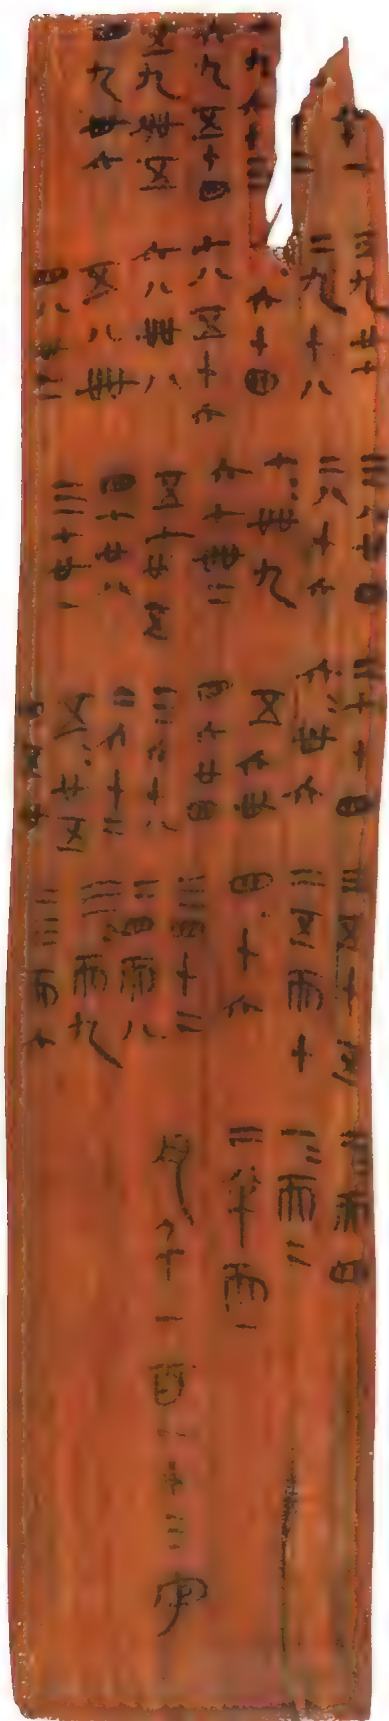 十一
二
九六十三
六九五十四
五九卌五
四九卅六
三九廿七
二九十八
八=六十四
七八五十六
六八卌八
五八卌
四八卅二
三八廿四
二八十六
七=卌九
六七卌二
五七卅五
四七廿八
三七廿一
二七十四
六=卅六
五六卅
四六廿四
三六十八
二六十二
五=廿五
四五廿
三五十五
二五而十
四=十六
三四十二
二四而八
三=而九
二三而六
二=而四
一=而二
二半而一
凡千一百一十三字